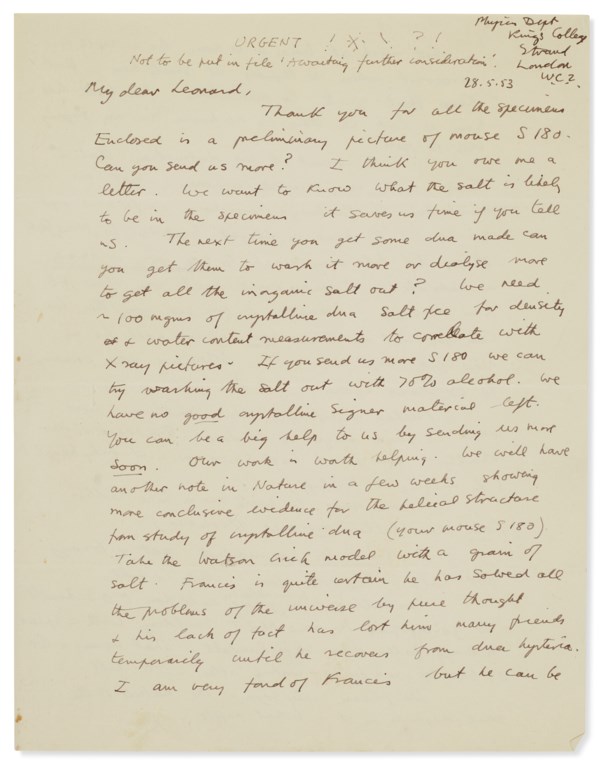 Physics Dept
King's College
Strand
London
W.C.2.
28.5.53
URGENT ! X ! ? !
Not to be put in file 'Awaiting further consideration'.
My dear Leonard,
Thank you for all the specimens
Enclosed is a preliminary picture of mouse S 180.
Can you send us more? I think you owe me a
letter. We want to know what the salt is likely
to be in the specimens it saves us time if you tell
us. The next time you get some dna made can
you get them to wash it more or dialyse more
to get all the inorganic salt out? We need
~ 100 mgms of crystalline dna salt free for density
& water content measurements to correlate with
X ray pictures - If you send us more S 180 we can
try washing the salt out with 70% alcohol. We
have no good crystalline Signer material left.
You can be a big help to us by sending us more
soon. Our work is worth helping. We will have
another note in Nature in a few weeks showing
more conclusive evidence for the helical structure
from study of crystalline dna (your mouse S 180)
Take the Watson Crick model with a grain of
salt. Francis is quite certain he has solved all
the problems of the universe by pure thought
& his lack of tact has lost him many friends
temporarily until he recovers from dna hysteria.
I am very fond of Francis but he can be